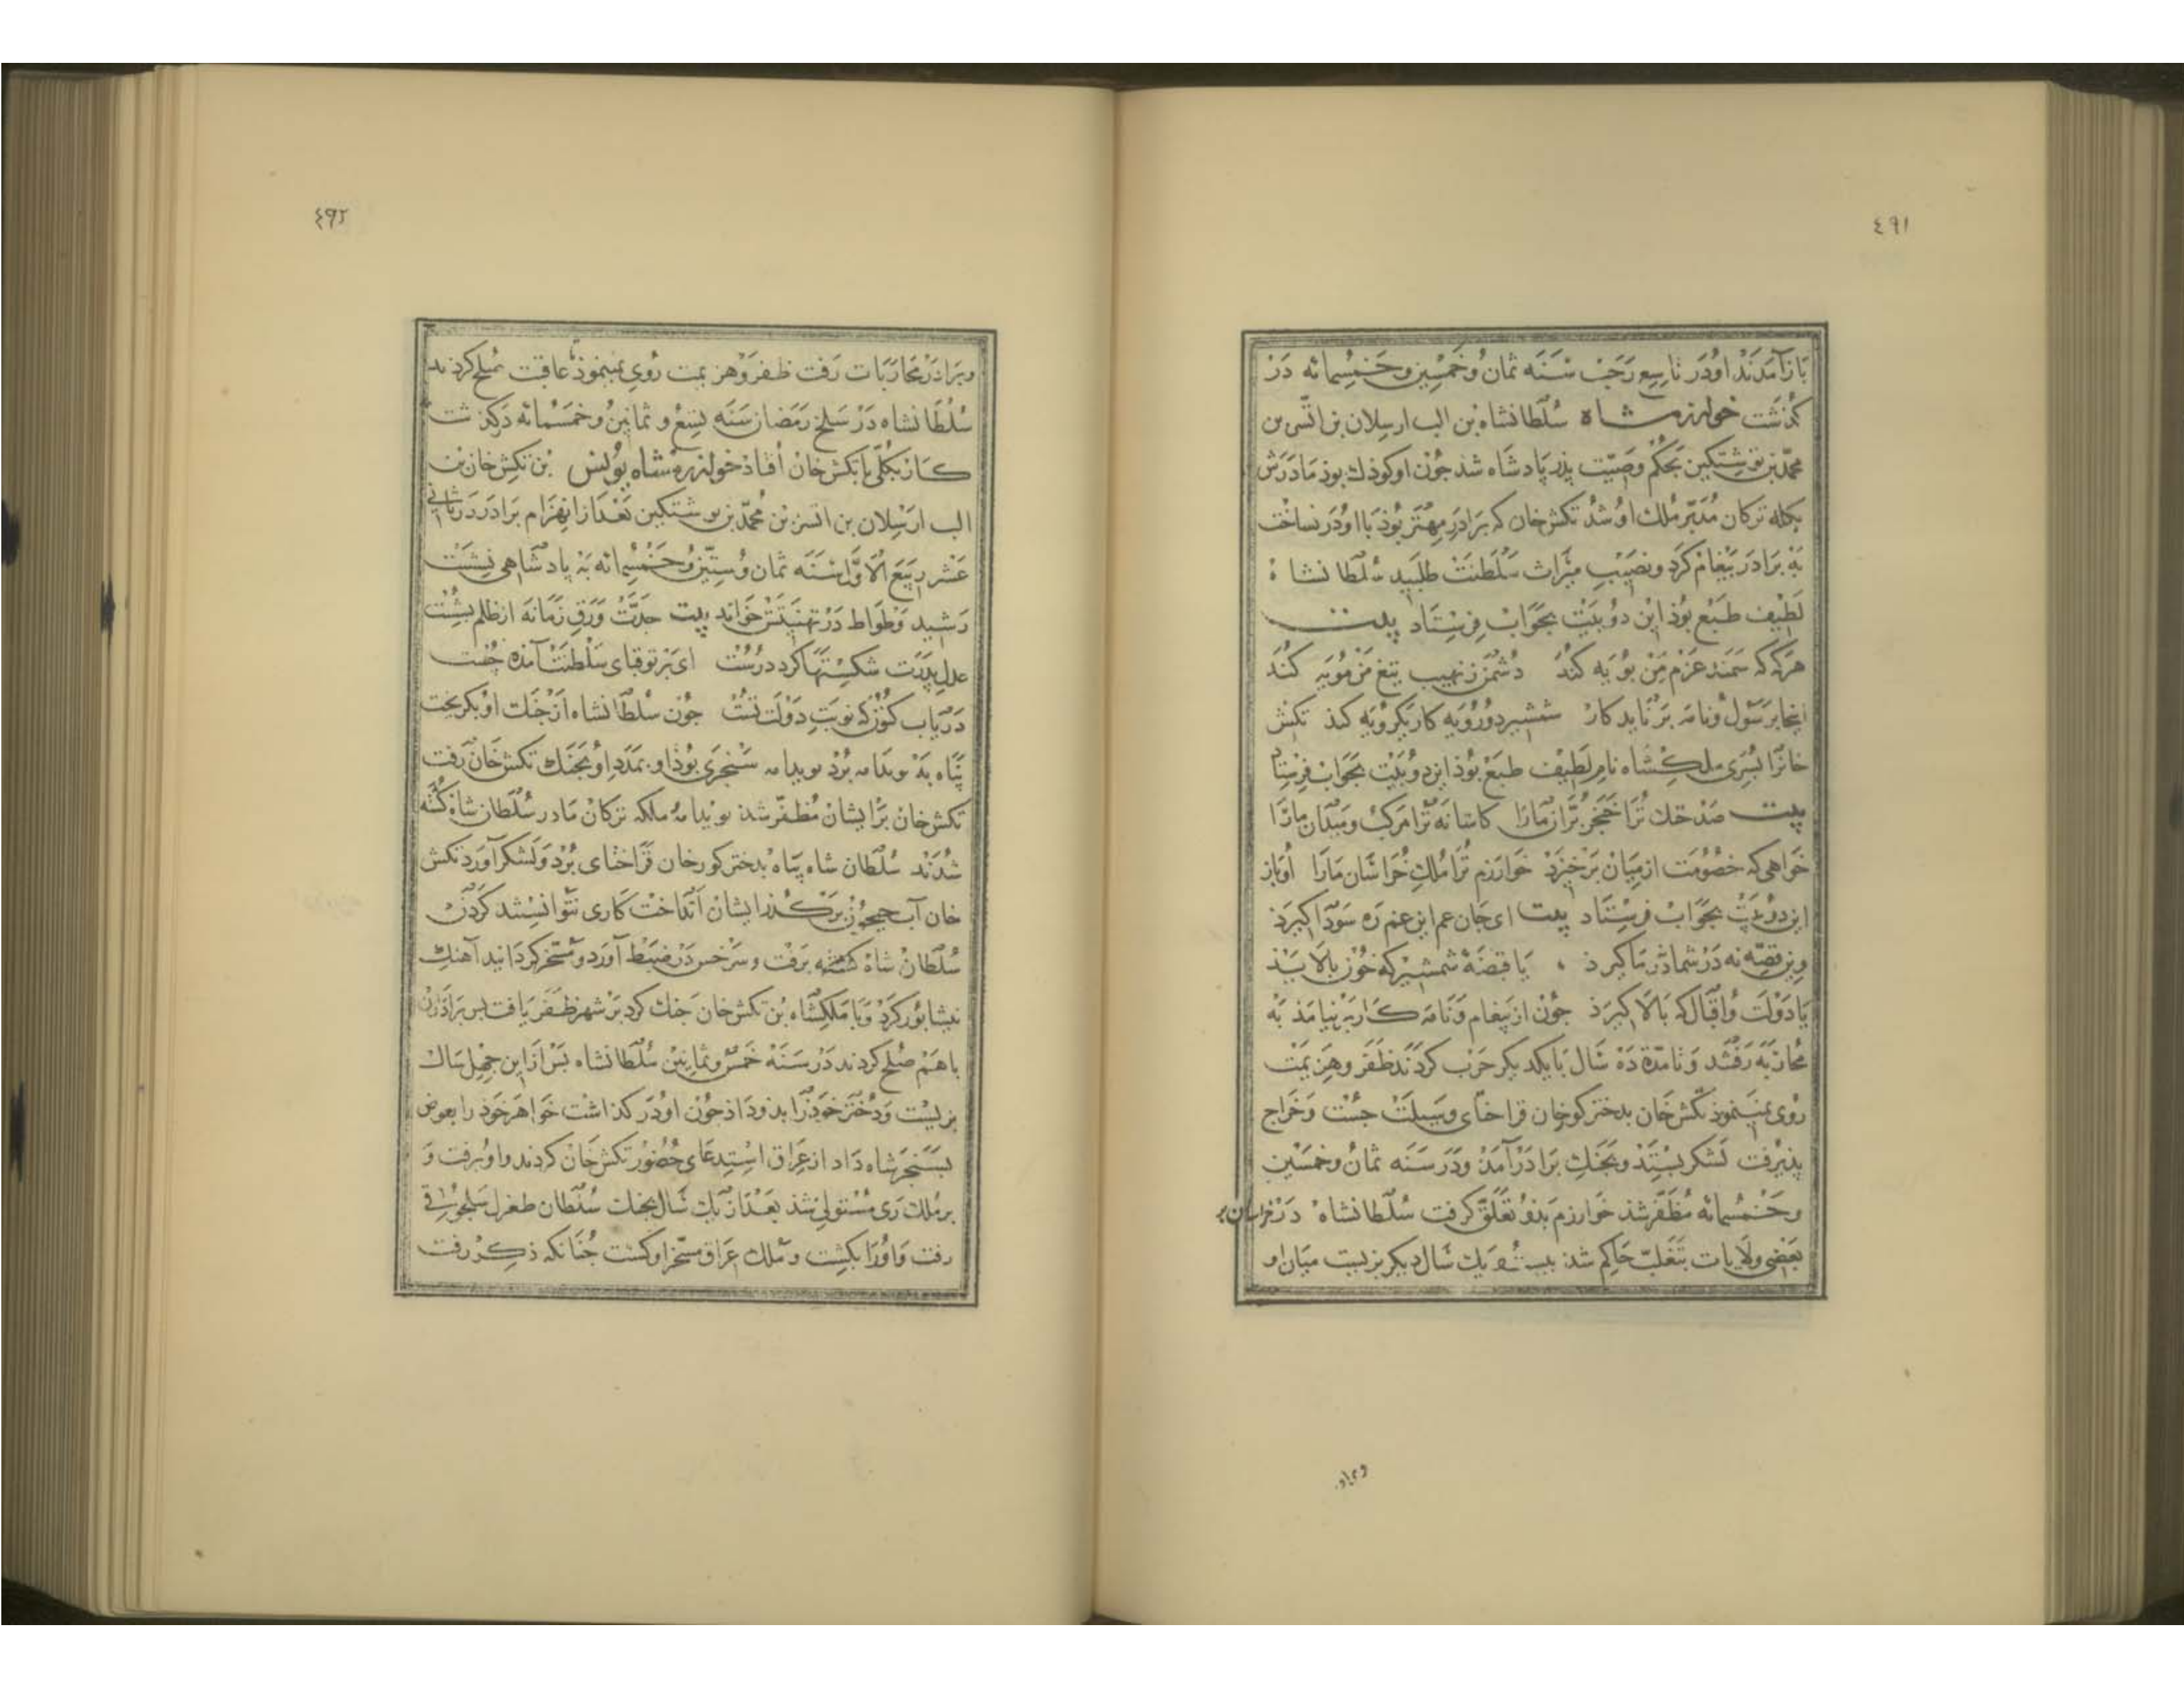 ٤٩١
بَازآمَدَنْد اودَر تاسِع رَجَبْ سَنَه ثمان وخَمْسِین وخَمْسمِائه دَرْ
کذَشت خوارزمشاه سُلطانشاه بن الب ارسلان بن اتسز بن
محمّد بن نوشتکین بحکم وصیّت پذر پادشاه شذ جُون اوکوذك بوذ مَادَرَش
ملکه ترکان مُدَبّر مُلك اوشُد تکش خان که برَادَر مِهْتَر بُوذ بااودَر نساخْت
بَه برَادَر پَیْغام کَرد ونصیبِ میراث سَلْطَنَتْ طلبید سُلطانشاه
لَطِیْف طبْع بُوذ این دو بَیْت بجَوَابْ فِرسْتَاد بیت
هَرکَه که سَمَند عَزْم مَن بُویَه کُنَد دُشمَن ز نهیب تیغ من مُویَه کُنَد
اینجا برَسُول ونامَه بَر نایَد کارْ شمشیر دورُویَه کار یکرُویَه کند تکش
خانرَا پسَری ملکشاه نام لَطِیْف طبْع بُوذ این دو بَیْت بجَوَابْ فرسِتاد
بیت صَدْ خنك تُرَا خَنجر بُرّان مَارَا کاشانَه تُرَا مرکب ومیْدَان مارَا
خوَاهی که خصُومَت از میَانْ بَرخیزَدْ خوَارَزم تُرَا مُلك خُرَاسَان مَارَا اُوباز
این دو بَیْتْ بجَوَابْ فرستاد بیت ای جَان عم این غم رَه سَوْدَا کیرَذ
وین قصّه نه دَرْ شما نه دَرْ ما کیرَذ ، یَا قبضَهٔ شمشیر که خُون بالایذ
یَادَولَت واقبَال که بَالا کیرَذ جُون ازپیغام وَنَامَه کَار بَرنیامَذ بَه
مُحارَبَه رَفْتند وَتامُدّة دَه سَال بَا یکدیکر حَرْب کردَند ظَفَر وهَزیمَتْ
رُوی میَنموذ تکش خَان بدختر کورخان قراختای وسیلَتْ جُسْت وَخَراج
پذیرفت لَشکر بِسْتَذ وبجَنك برَادَر آمَذ ودَر سَنَه ثمان وخمْسین
وخَمْسمِائه مُظَفّر شذ خوَارزم بذو تعَلق کرفت سُلْطانشاه دَرْ خراسان بر
بَعْضِی ولایات بتَغَلّب حَاکم شذ بیست ویك سَال دیکر بزیست میَان او
وبراد

٤٩٢
وبرَادَرْ مُحارَبَات رَفت ظفَر وهزیمت رُوی میَنموذ عاقبت صُلح کردند
سُلْطانشاه دَرْ سَلخ رَمَضان سَنَه تسْع وثمانین وخمسمائه دَرکذشت
کار بکُلّی با تکش خان اُفتاذ خوارزمشاه یونس بن تکش خان بن
الب ارسْلان بن اتسز بن مُحمّد بن نوشتکین بَعْدَ از انهزام برَادَر دَر ثانی
عَشر رَبیع الاوّل سَنَه ثمان وستّین وخَمسمائه بَه پادشاهی نِشَسْت
رَشید وَطْوَاط دَرْ تهنیَتش خوَاند بیت جدّتْ وَرَق زَمَانَه از ظلم بشُسْت
عدل پدَرَت شکسْتهَا کرد درُسْت ای بَر توقبای سَلْطنَتْ آمَذه جُست
دَریاب کنُون که نوبَتِ دَولَت تُسْت جون سُلْطانشاه از جَنك او بکریخت
پَناه بَه مویدامه بُرْد مویدامه سَنْجَری بُوذ او بمَدَد او بجَنك تکش خَانْ رَفت
تکش خان برایشان مُظفّر شد مویدامه وملکه ترکان مَادر سُلطان شاه کُشته
شدَنْد سُلْطان شاه پناه بدختر کورخان قرَاختای بُرْد وَلشکر آورَد تکش
خان آب جیحُون بر کذر ایشان اندَاخت کَاری نتوانسْتند کردَن
سُلْطان شاه کشته برَفت وسَرَخس دَرْ ضَبْط آورَد ومُسَخّر کردَانید آهنك
نیشابور کرَدْ وَبا مَلکشَاه بْن تکش خان جَنك کرد بَر شهر ظفَر یَافت پس برَاذرَان
باهَمْ صُلح کردَند دَرْ سَنَه خَمْس وثمانین سُلْطانشاه بَس از این جهل سَال
بزیست وَدختر خوذ را بدو داذ جون اودَر کذاشت خوَاهَر خوذ را بعوض
بسَنجر شاه دَاد از عرَاق اسْتِدعَای حُضُور تکش خان کردَند واوبرفت وَ
بر مُلك رَی مُسْتولی شذ بَعْد از یَك سَال بجنك سُلْطان طغرل سَلْجوقی
رفت وَاورَا بکشت ومُلك عرَاق مسخّر اوکشت جُنانکه ذکر رفت